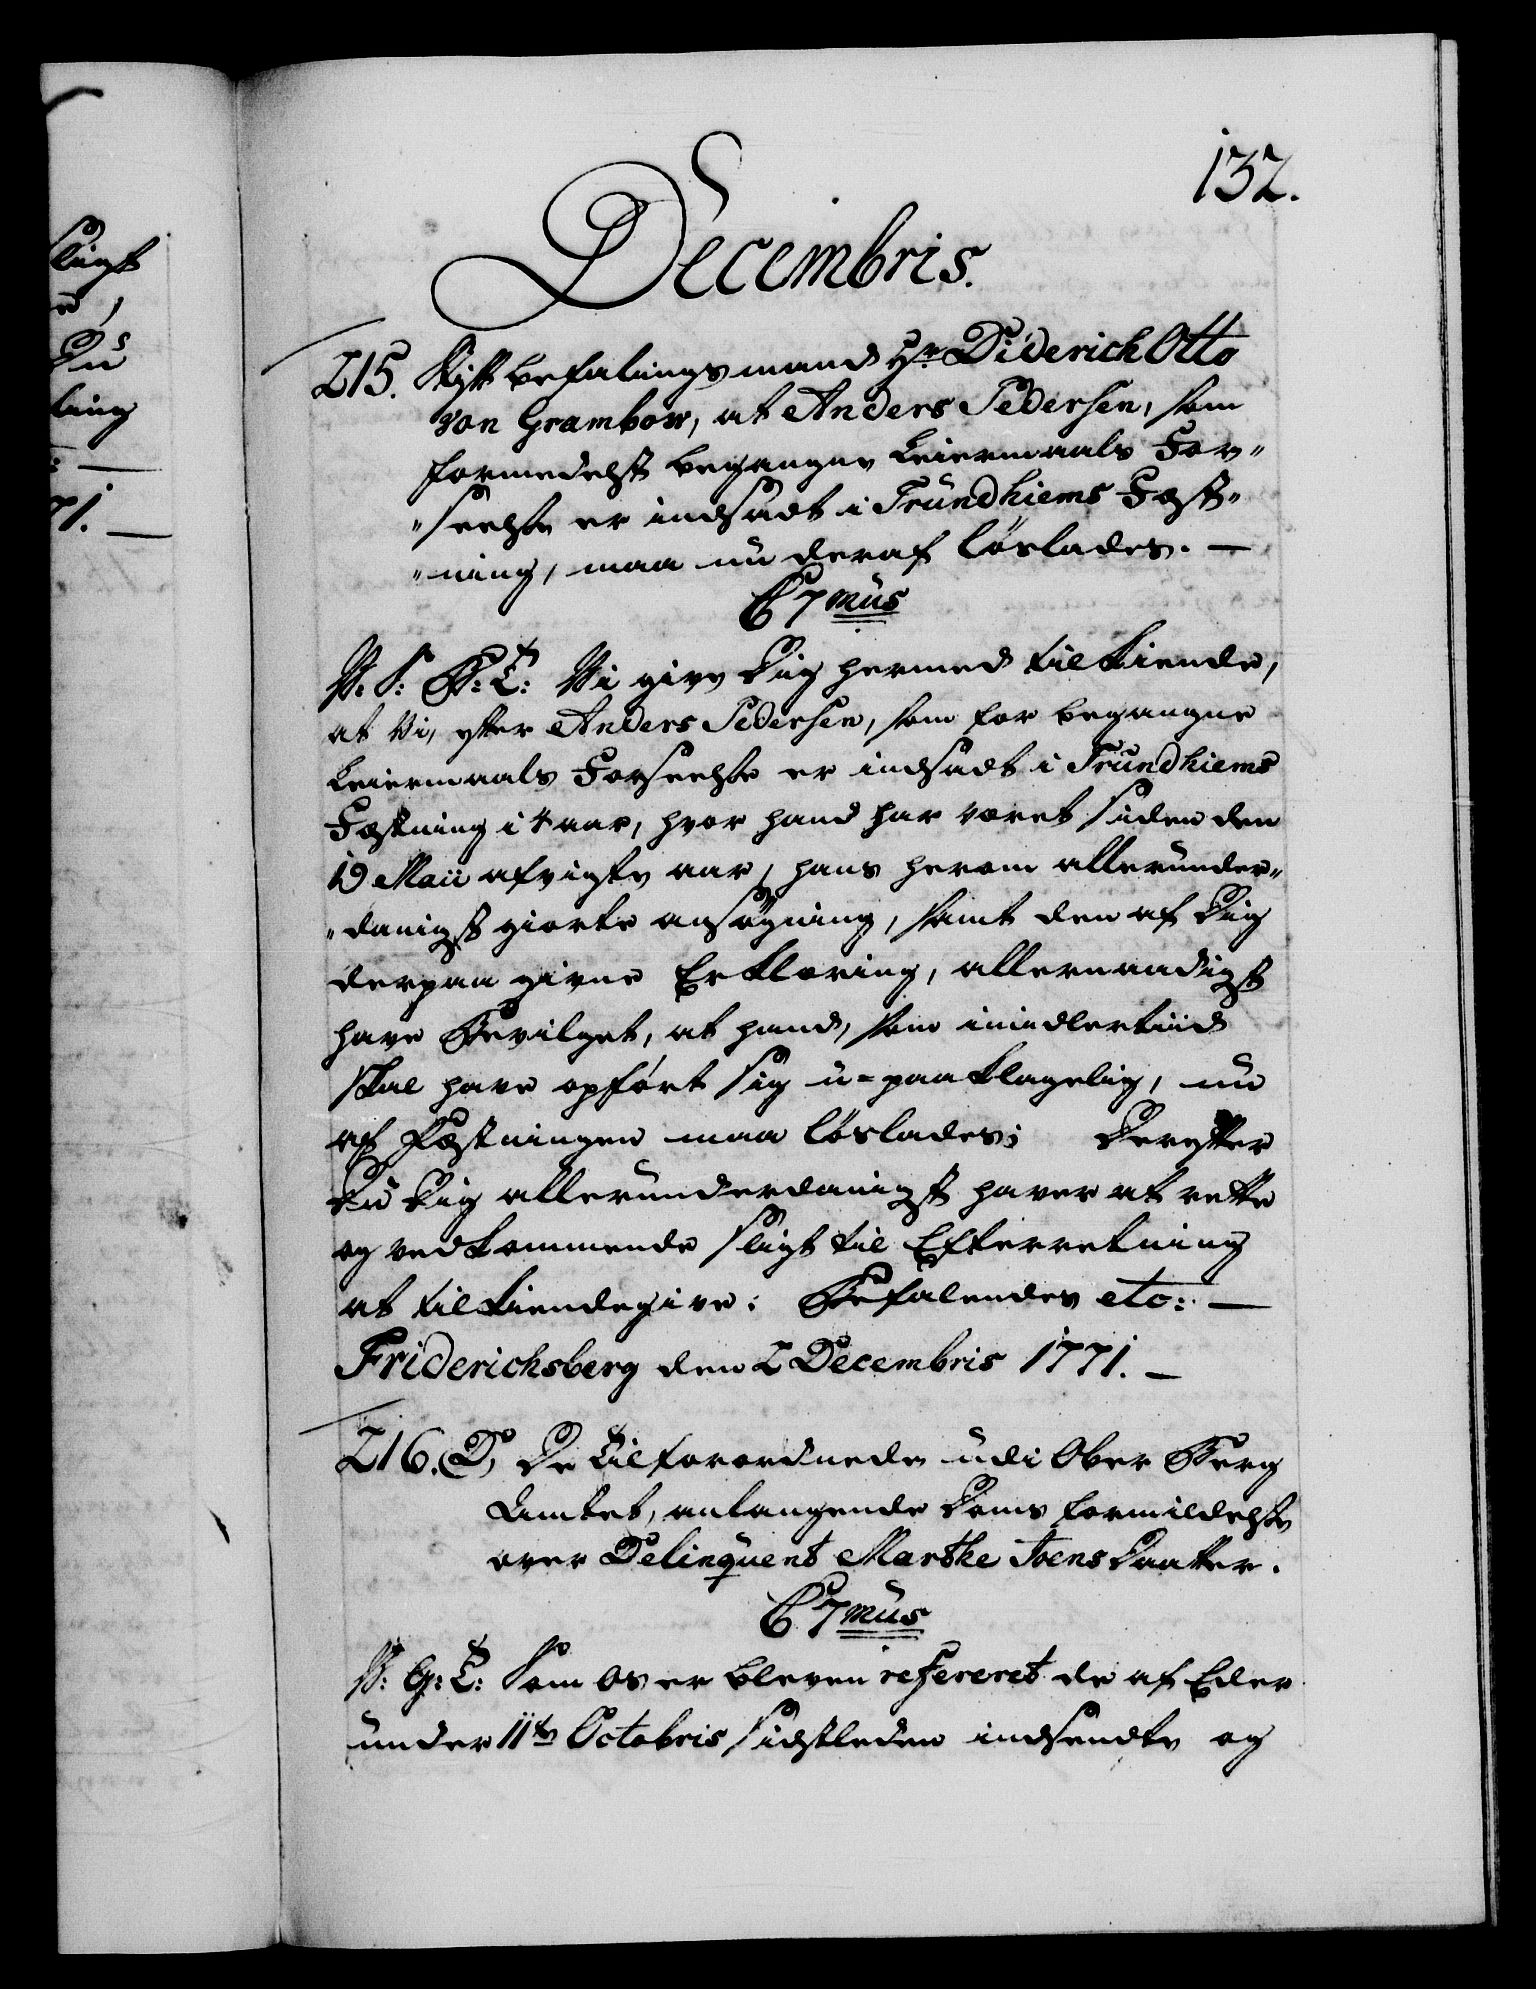 132.
Decembris.
215. Stift befalingsmand Hr. Diderich Otto
von Grambow, at Anders Pedersen, som
formedelst begangne Leiermaals For„
„seelse er indsadt i Trundhiems Fæst„
„ning, maa nu deraf løslades. —
C 7mus
V: S: G: T: Vi give Dig hermed tilkiende,
at Vi, efter Anders Pedersen, som for begangne
Leiermaals Forseelse er indsadt i Trundhiems
Fæstning i 4 aar, hvor hand har været siden den
19 Maii afvigte aar, hans herom allerunder„
„danigst giorte ansøgning, samt den af Dig
derpaa givne Erklæring, allernaadigst
have Bevilget, at hand, som imidlertiid
skal have opført sig u=paaklagelig, nu
af Fæstningen maa løslades; Derefter
Du Dig allerunderdanigst haver at rette
og vedkommende sligt til Efterretning
at tilkiendegive. Befalendes etc: —
Friderichsberg den 2 Decembris 1771. —
216. De Tilforordnede udi Ober Berg
Amtet, anlangende Doms formildelse
over Delinquent Marthe Joens Daatter.
C 7mus
V: G: T: Som Os er bleven refereret de af Eder
under 11te Octobris sidstleden indsendte og
sligt
Du
ling
71. —